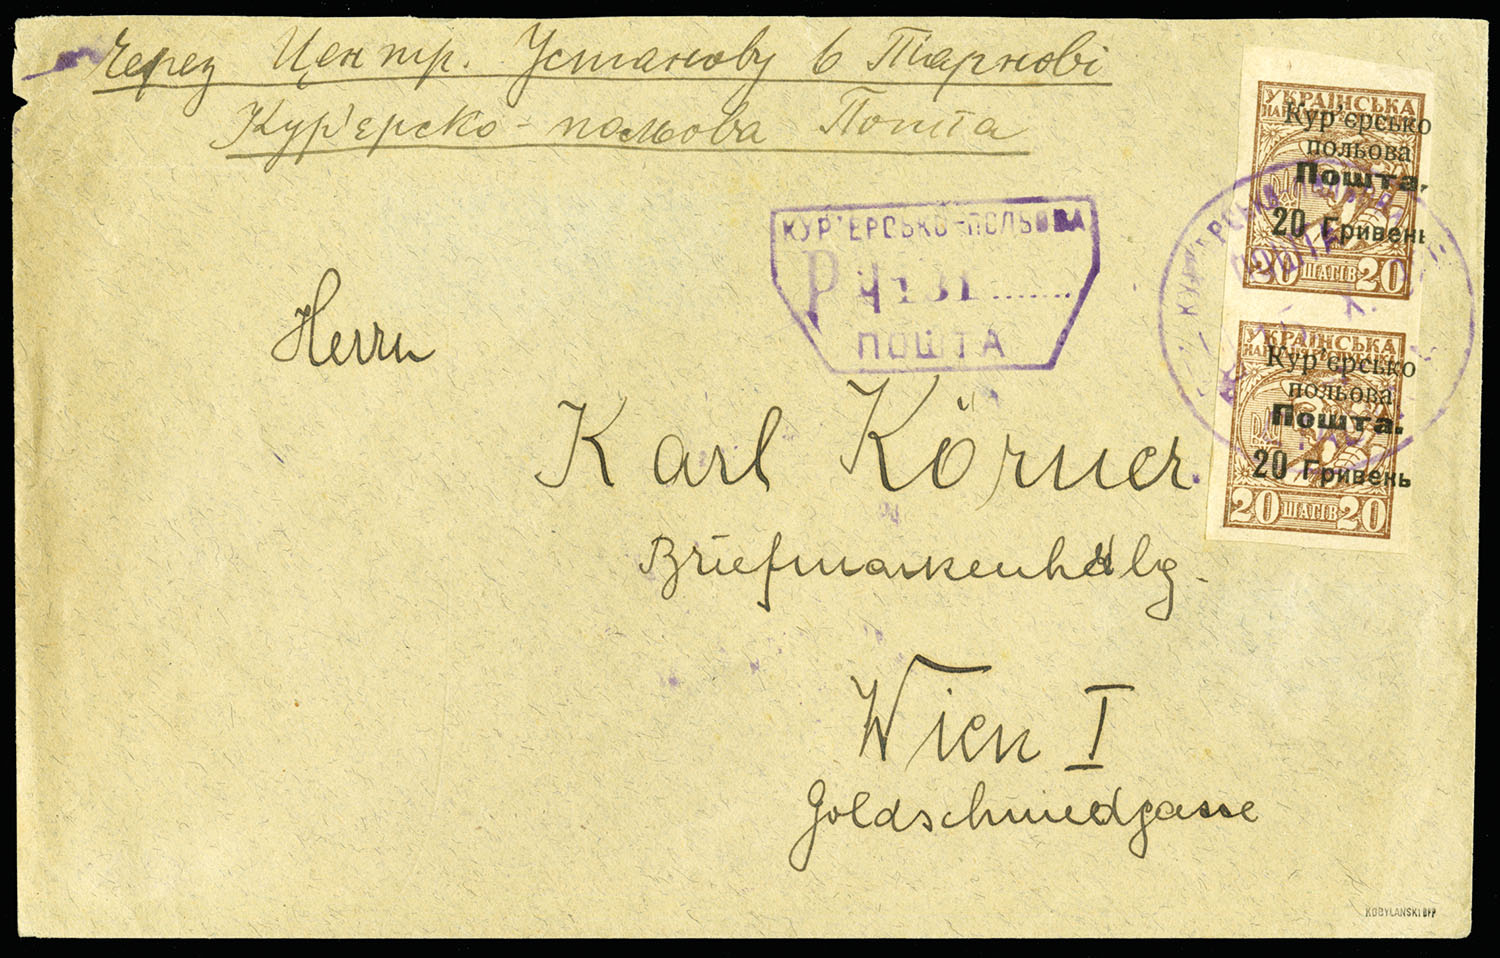 Через Центр. Установу в Тарнові
Кур'єрско-польова Пошта
УКРАЇНСЬКА
Кур'єрсько
польова
Пошта.
20 Гривень
20 ШАГІВ 20
КУР'ЕРСЬКО-ПОЛЬОВА
ПОШТА
УКРАЇНСЬКА
Кур'єрсько
польова
Пошта.
20 Гривень
20 ШАГІВ 20
Herrn
Karl Körner
Briefmarkenhdlg.
Wien I
Goldschmiedgasse
KOBYLANSKI BPP